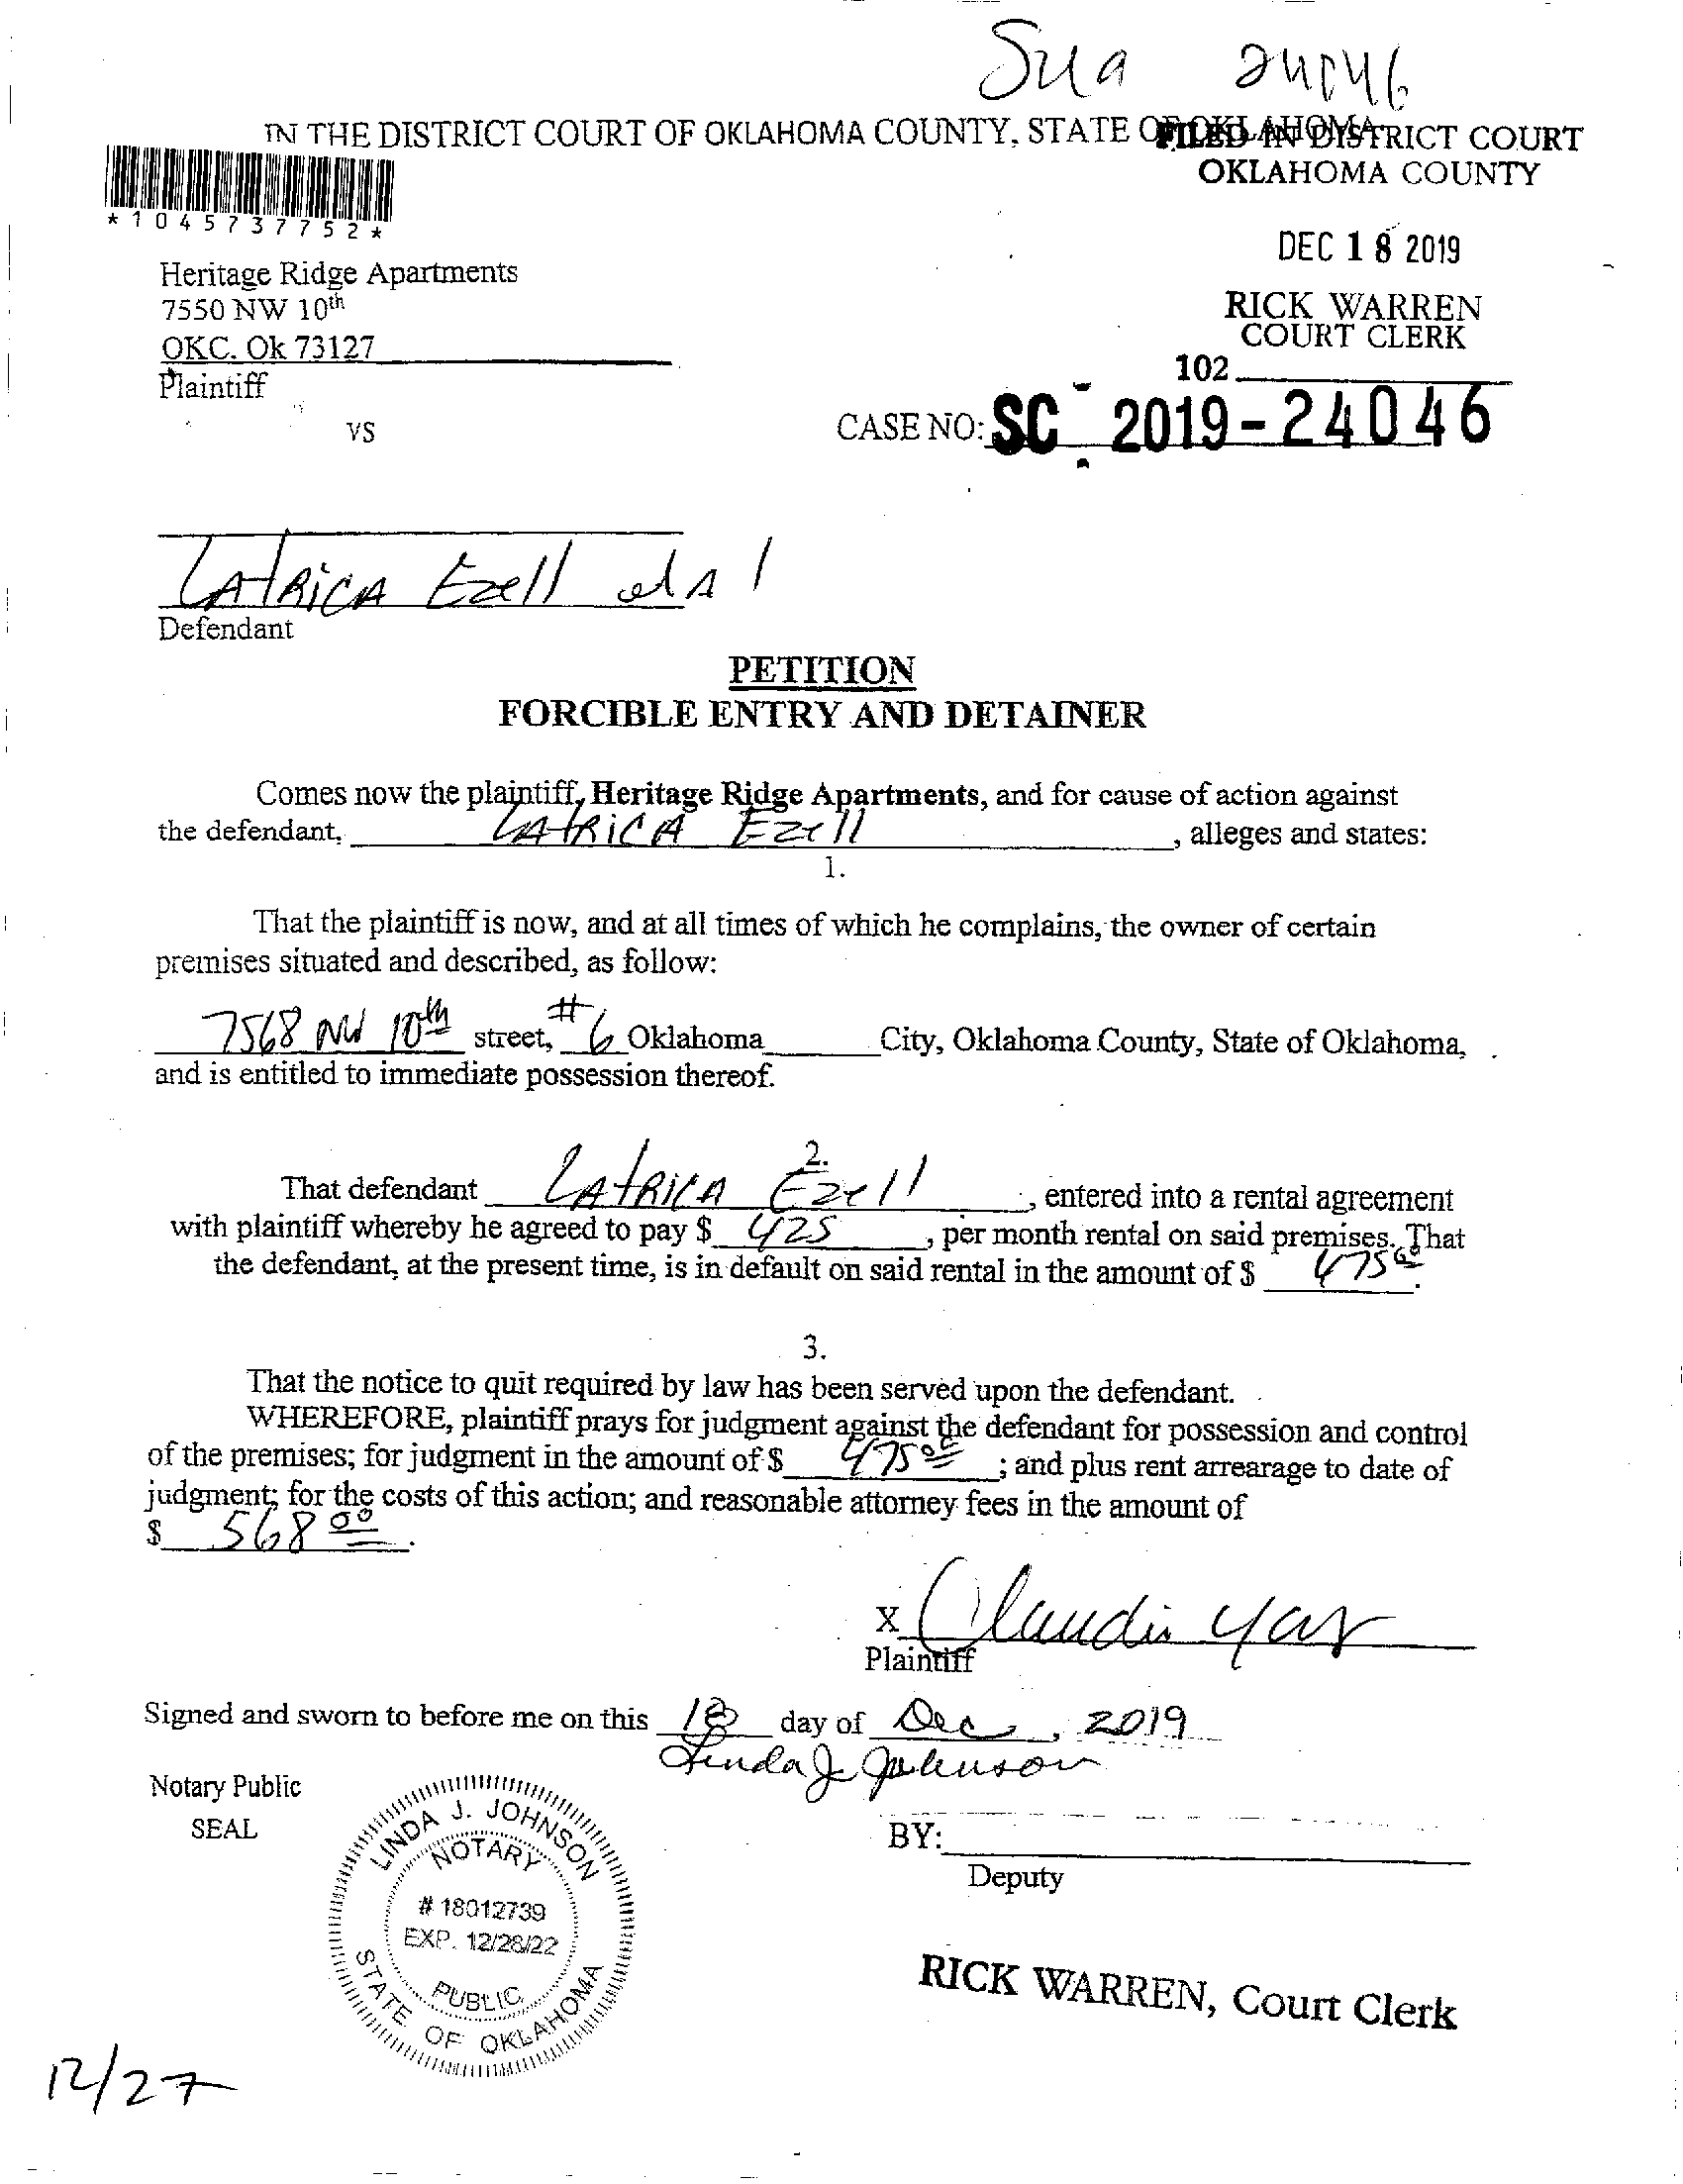 Sua 24046
IN THE DISTRICT COURT OF OKLAHOMA COUNTY, STATE OF OKLAHOMA
FILED IN DISTRICT COURT
OKLAHOMA COUNTY
*1045737752*
DEC 18 2019
Heritage Ridge Apartments
7550 NW 10th
OKC. Ok 73127
Plaintiff
RICK WARREN
COURT CLERK
102
vs
CASE NO: SC - 2019-24046
LAtRiCA Ezell et al
Defendant
PETITION
FORCIBLE ENTRY AND DETAINER
Comes now the plaintiff, Heritage Ridge Apartments, and for cause of action against
the defendant, LAtRiCA Ezell, alleges and states:
1.
That the plaintiff is now, and at all times of which he complains, the owner of certain
premises situated and described, as follow:
7568 NW 10th street, #6 Oklahoma City, Oklahoma County, State of Oklahoma,
and is entitled to immediate possession thereof.
2.
That defendant LAtRiCA Ezell, entered into a rental agreement
with plaintiff whereby he agreed to pay $ 425, per month rental on said premises. That
the defendant, at the present time, is in default on said rental in the amount of $ 475 00.
3.
That the notice to quit required by law has been served upon the defendant.
WHEREFORE, plaintiff prays for judgment against the defendant for possession and control
of the premises; for judgment in the amount of $ 475 00; and plus rent arrearage to date of
judgment; for the costs of this action; and reasonable attorney fees in the amount of
$ 568 00.
X
Plaintiff
Signed and sworn to before me on this 18 day of Dec, 2019
Linda J Johnson
Notary Public
SEAL
LINDA J. JOHNSON
NOTARY
# 18012739
EXP. 12/28/22
PUBLIC
STATE OF OKLAHOMA
BY:
Deputy
RICK WARREN, Court Clerk
12/27